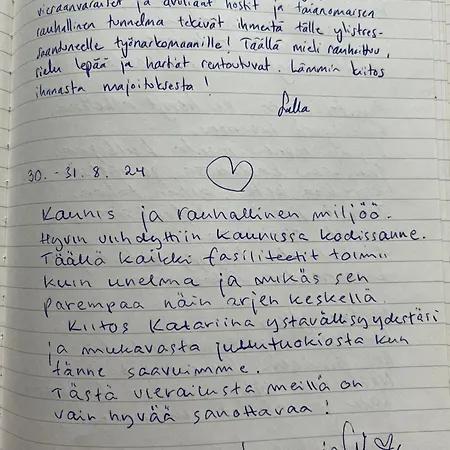 vieraanvaraiset ja avuliaat hostit ja taianomaisen
rauhallinen tunnelma tekivät ihmeitä tälle ylistres-
saantuneelle työnarkomaanille! Täällä mieli rauhoittuu,
sielu lepää ja hartiat rentoutuvat. Lämmin kiitos
ihanasta majoituksesta!
30.-31.8.24
Kaunis ja rauhallinen miljöö.
Hyvin viihdyttiin kauniissa kodissanne.
Täällä kaikki fasiliteetit toimii
kuin unelma ja mikäs sen
parempaa näin arjen keskellä.
Kiitos Katariina ystävällisyydestäsi
ja mukavasta juttutuokiosta kun
tänne saavuimme.
Tästä vierailusta meillä on
vain hyvää sanottavaa!